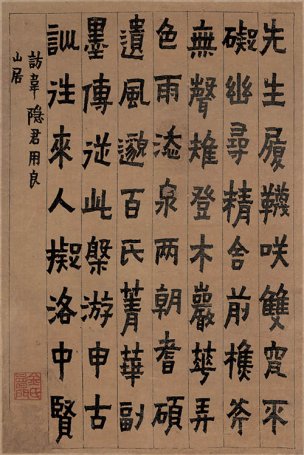 先生履韈咲雙穿不
礙幽尋精舍前樵斧
無聲雉登木巖華弄
色雨添泉兩朝耆碩
遺風邈百氏菁華副
墨傳從此槃游申古
訓往來人擬洛中賢
訪韋隱君用良
山居
金氏壽門